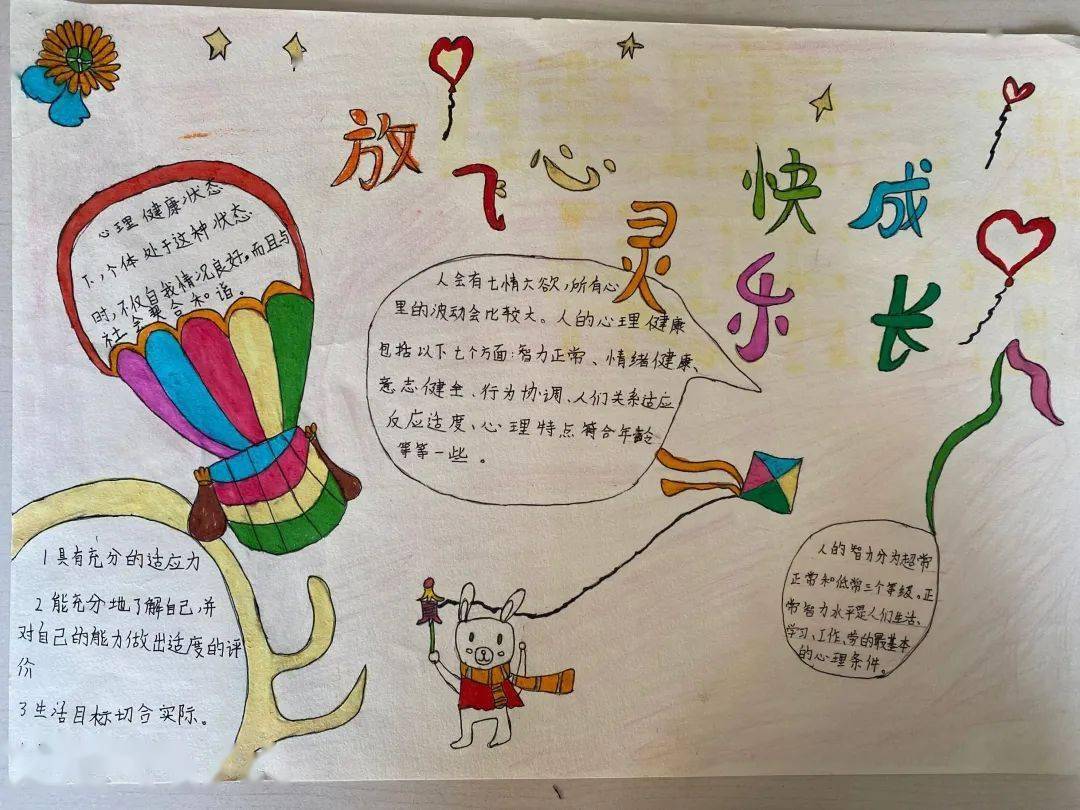 放飞心灵
快乐
成长
心理健康状态
下，个体处于这种状态
时，不仅自我情况良好，而且与
社会契合和谐。
人会有七情大欲，所有心
里的波动会比较大。人的心理健康
包括以下七个方面：智力正常、情绪健康、
意志健全、行为协调、人们关系适应
反应适度、心理特点符合年龄
等等一些。
1具有充分的适应力
2能充分地了解自己，并
对自己的能力做出适度的评
价
3生活目标切合实际。
人的智力分为超常
正常和低常三个等级。正
常智力水平是人们生活、
学习、工作、劳的最基本
的心理条件。